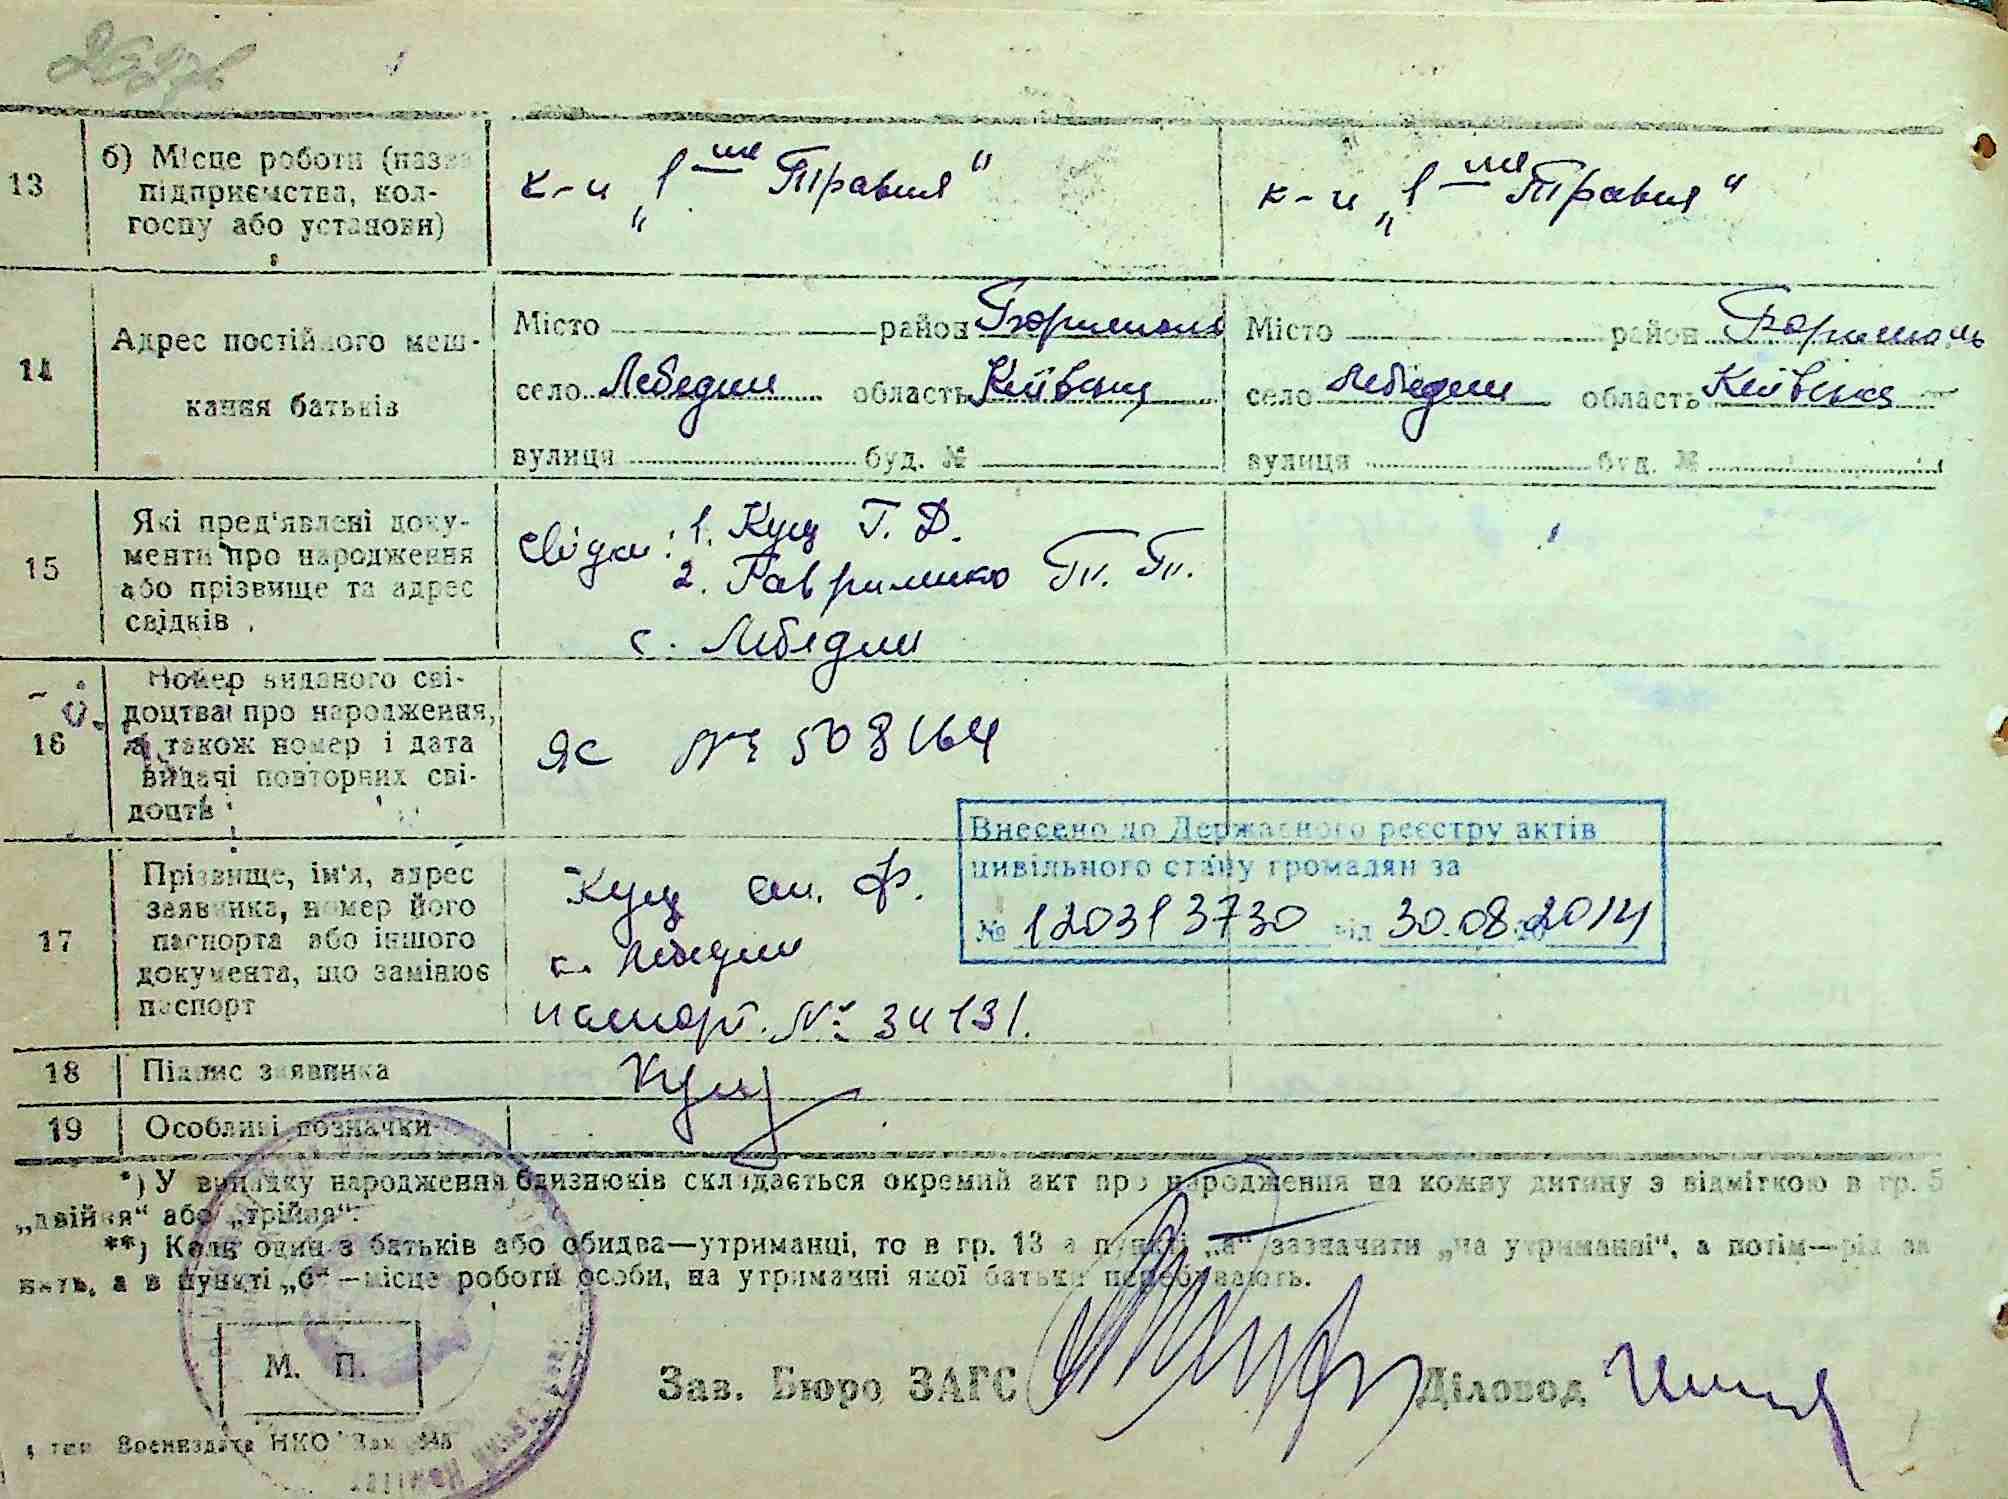 13
б) Місце роботи (назва
підприємства, кол-
госпу або установи)
к-п „1ше Травня“
к-п „1ше Травня“
14
Адрес постійного меш-
кання батьків
Місто район Бориспіль
село Лебедин область Київська
вулиця буд. №
Місто район Бориспіль
село Лебедин область Київська
вулиця буд. №
15
Які пред'явлені доку-
менти про народження
або прізвище та адрес
свідків
Свідки: 1. Кущ Г. Д.
2. Гавриленко П. П.
с. Лебедин
16
Номер виданого сві-
доцтва про народження,
а також номер і дата
видачі повторних сві-
доцтв
ЯС № 508164
Внесено до Державного реєстру актів
цивільного стану громадян за
№ 120313730 від 30.08.2014
17
Прізвище, ім'я, адрес
заявника, номер його
паспорта або іншого
документа, що замінює
паспорт
Кущ Ф.
с. Лебедин
паспорт. № 34131.
18
Підпис заявника
Кущ
19
Особливі позначки
*) У випадку народження близнюків складається окремий акт про народження на кожну дитину з відміткою в гр. 5
„двійня“ або „трійня“.
**) Коли один з батьків або обидва—утриманці, то в гр. 13 в пункті „а“ зазначити „на утриманні“, а потім—рід за
нять, а в пункті „б“—місце роботи особи, на утриманні якої батьки перебувають.
М. П.
Зав. Бюро ЗАГС
Діловод
тип Воениздата НКО Зак